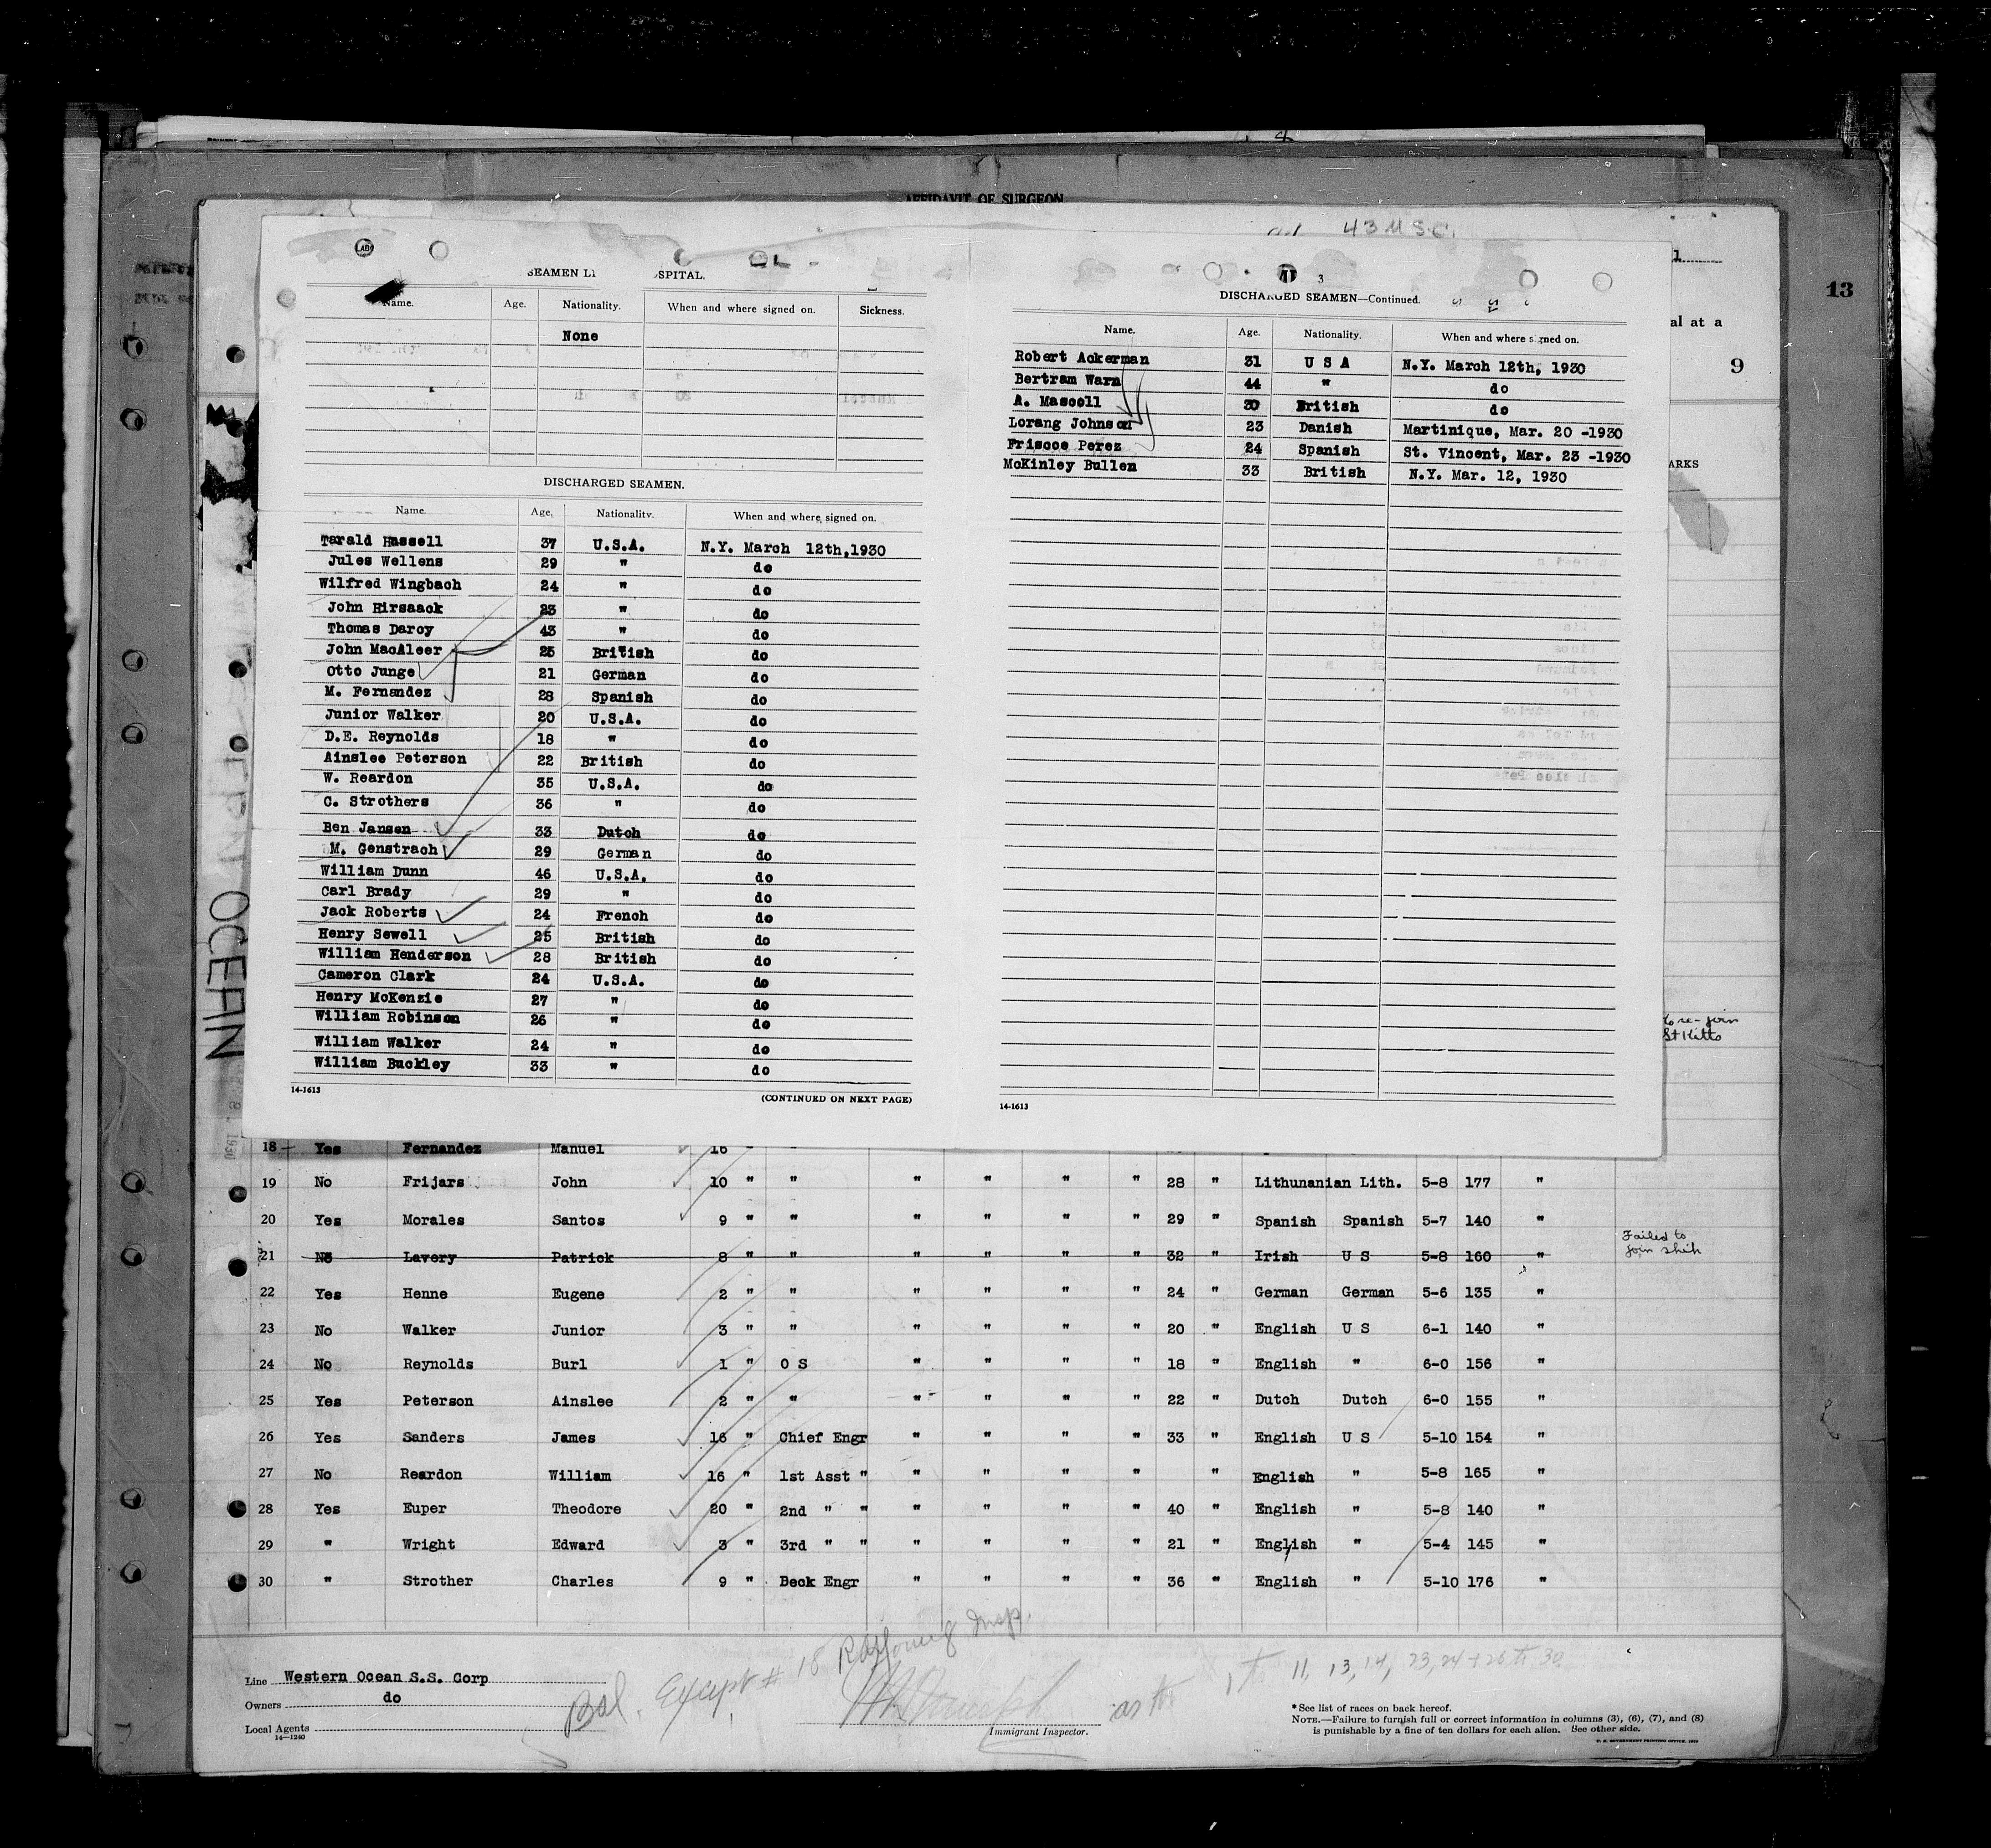 AFFIDAVIT OF SURGEON
43 U.S.C.
13
al at a
9
ARKS
SEAMEN LI SPITAL.
Name. Age. Nationality. When and where signed on. Sickness.
None
DISCHARGED SEAMEN.
Name. Age. Nationality. When and where signed on.
Tarald Hassell 37 U.S.A. N.Y. March 12th,1930
Jules Wellens 29 " do
Wilfred Wingbach 24 " do
John Hirsaack 23 " do
Thomas Darcy 43 " do
John MacAleer 25 British do
Otto Junge 21 German do
M. Fernandez 28 Spanish do
Junior Walker 20 U.S.A. do
D.E. Reynolds 18 " do
Ainslee Peterson 22 British do
W. Reardon 35 U.S.A. do
C. Strothers 36 " do
Ben Jansen 33 Dutch do
M. Genstrach 29 German do
William Dunn 46 U.S.A. do
Carl Brady 29 " do
Jack Roberts 24 French do
Henry Sewell 25 British do
William Henderson 28 British do
Cameron Clark 24 U.S.A. do
Henry McKenzie 27 " do
William Robinson 26 " do
William Walker 24 " do
William Buckley 33 " do
14-1613 (CONTINUED ON NEXT PAGE)
3
DISCHARGED SEAMEN—Continued.
Name. Age. Nationality. When and where signed on.
Robert Ackerman 31 U S A N.Y. March 12th, 1930
Bertram Warn 44 " do
A. Mascoll 30 British do
Lorang Johnson 23 Danish Martinique, Mar. 20 -1930
Friscoe Perez 24 Spanish St. Vincent, Mar. 23 -1930
McKinley Bullen 33 British N.Y. Mar. 12, 1930
14-1613
OCEAN
to re-join
St Kitts
18 Yes Fernandez Manuel 16 " "
19 No Frijars John 10 " " " " " " 28 " Lithunanian Lith. 5-8 177 "
20 Yes Morales Santos 9 " " " " " " 29 " Spanish Spanish 5-7 140 "
21 No Lavery Patrick 8 " " " " " " 32 " Irish U S 5-8 160 " Failed to
join ship
22 Yes Henne Eugene 2 " " " " " " 24 " German German 5-6 135 "
23 No Walker Junior 3 " " " " " " 20 " English U S 6-1 140 "
24 No Reynolds Burl 1 " O S " " " " 18 " English " 6-0 156 "
25 Yes Peterson Ainslee 2 " " " " " " 22 " Dutch Dutch 6-0 155 "
26 Yes Sanders James 16 " Chief Engr " " " " 33 " English U S 5-10 154 "
27 No Reardon William 16 " 1st Asst " " " " " " English " 5-8 165 "
28 Yes Euper Theodore 20 " 2nd " " " " " " 40 " English " 5-8 140 "
29 " Wright Edward 3 " 3rd " " " " " " 21 " English " 5-4 145 "
30 " Strother Charles 9 " Deck Engr " " " " 36 " English " 5-10 176 "
Line Western Ocean S.S. Corp
Owners do
Local Agents
14—1240
Bal. Except # 18 Insp.
as to 1 to 11, 13, 14, 23, 24 + 26 to 30
Immigrant Inspector.
* See list of races on back hereof.
NOTE.—Failure to furnish full or correct information in columns (3), (6), (7), and (8)
is punishable by a fine of ten dollars for each alien. See other side.
U. S. GOVERNMENT PRINTING OFFICE